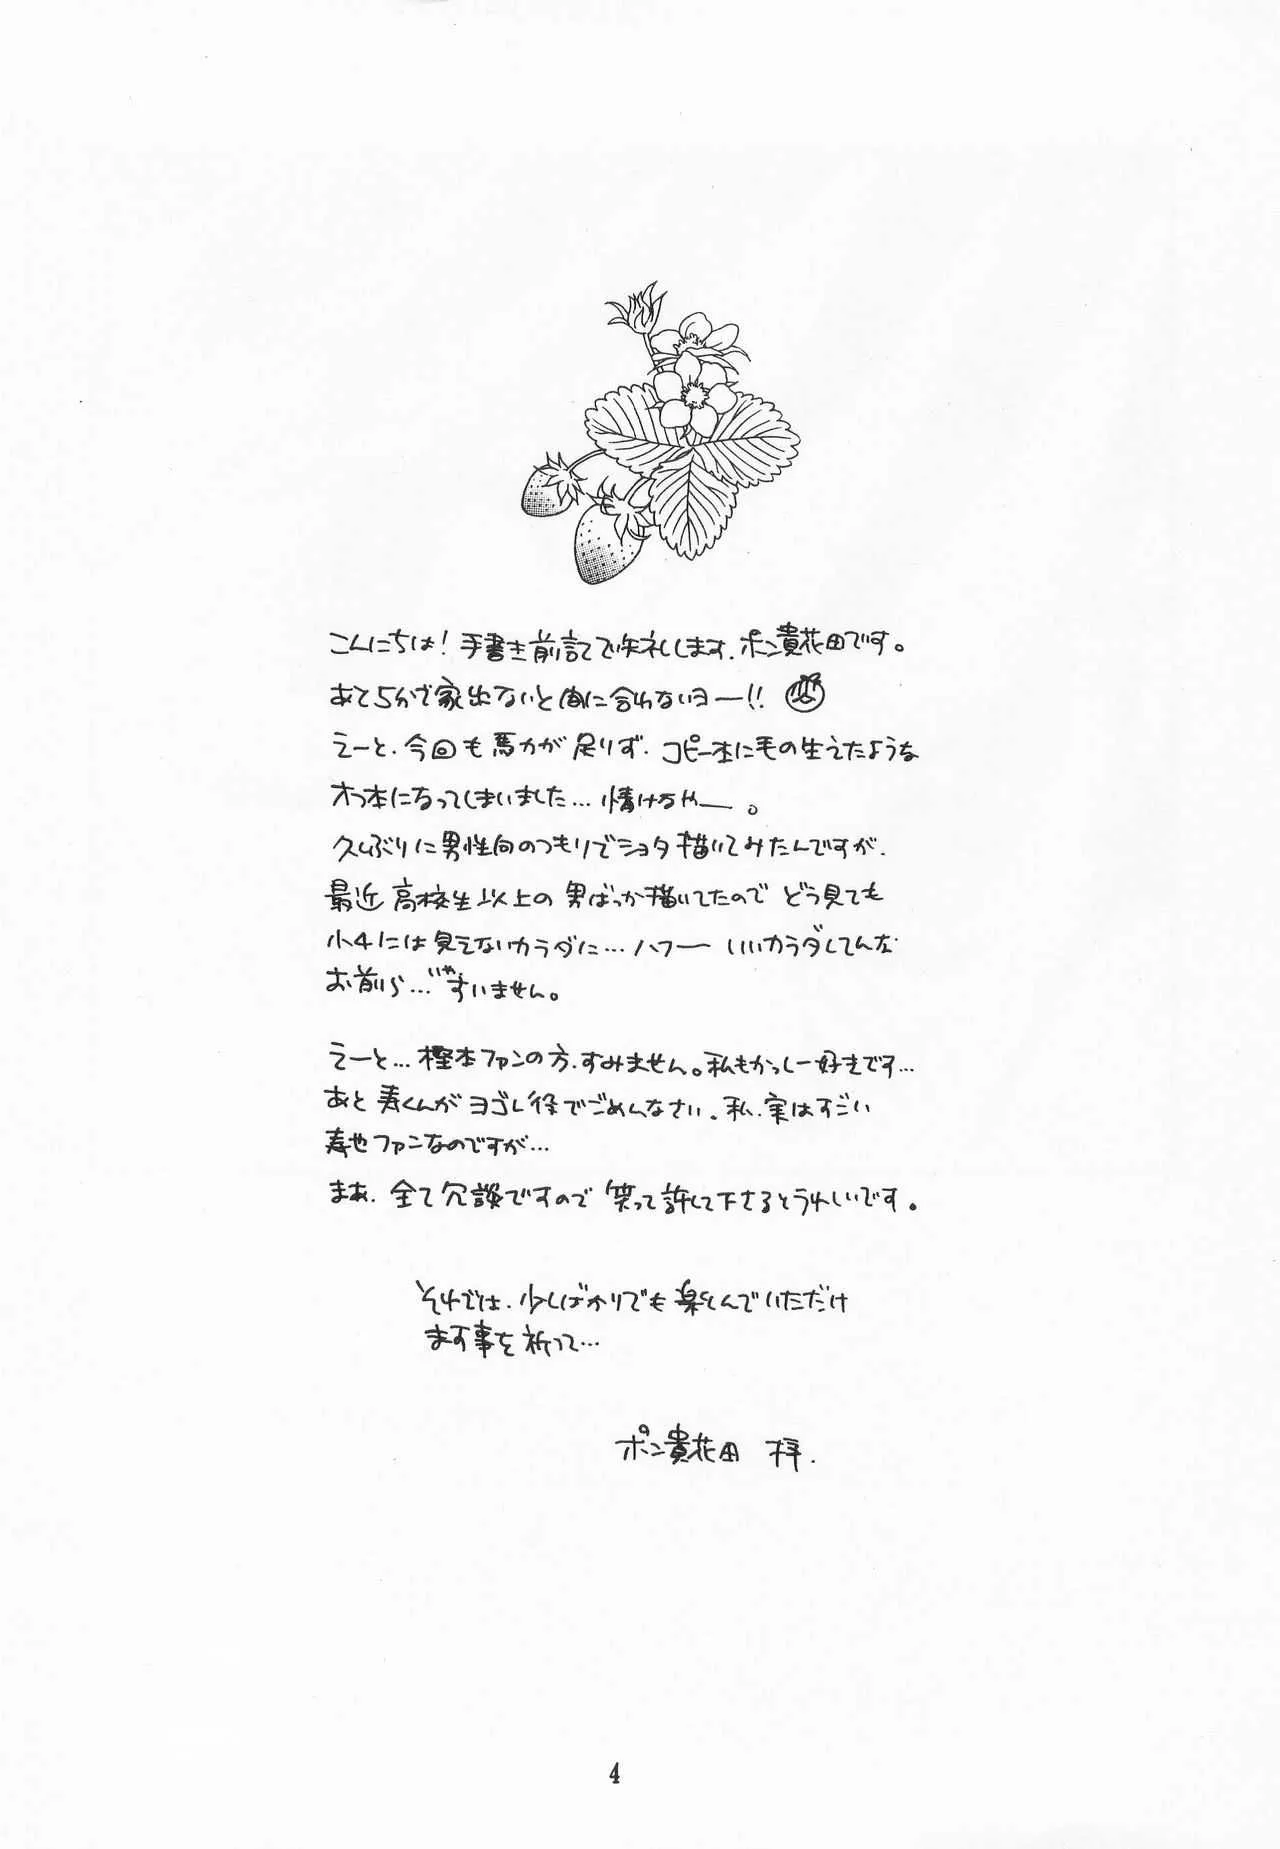 こんにちは!手書き前記で失礼します、ポン貴花田です。
あと5分で家出ないと間に合わないヨー!!
えーと、今回も馬力が足りず、コピー本に毛の生えたような
オフ本になってしまいました…情けなやー。
久しぶりに男性向のつもりでショタ描いてみたんですが、
最近高校生以上の男ばっか描いてたのでどう見ても
小4には見えないカラダに…ハフーいいカラダしてんな
お前ら…いやすいません。
えーと…樫本ファンの方、すみません。私もかっしー好きです…
あと寿くんがヨゴレ役でごめんなさい。私、実はすごい
寿也ファンなのですが…
まあ、全て冗談ですので笑って許して下さるとうれしいです。
それでは、少しばかりでも楽しんでいただけ
ます事を祈って…
ポン貴花田 拝.
4